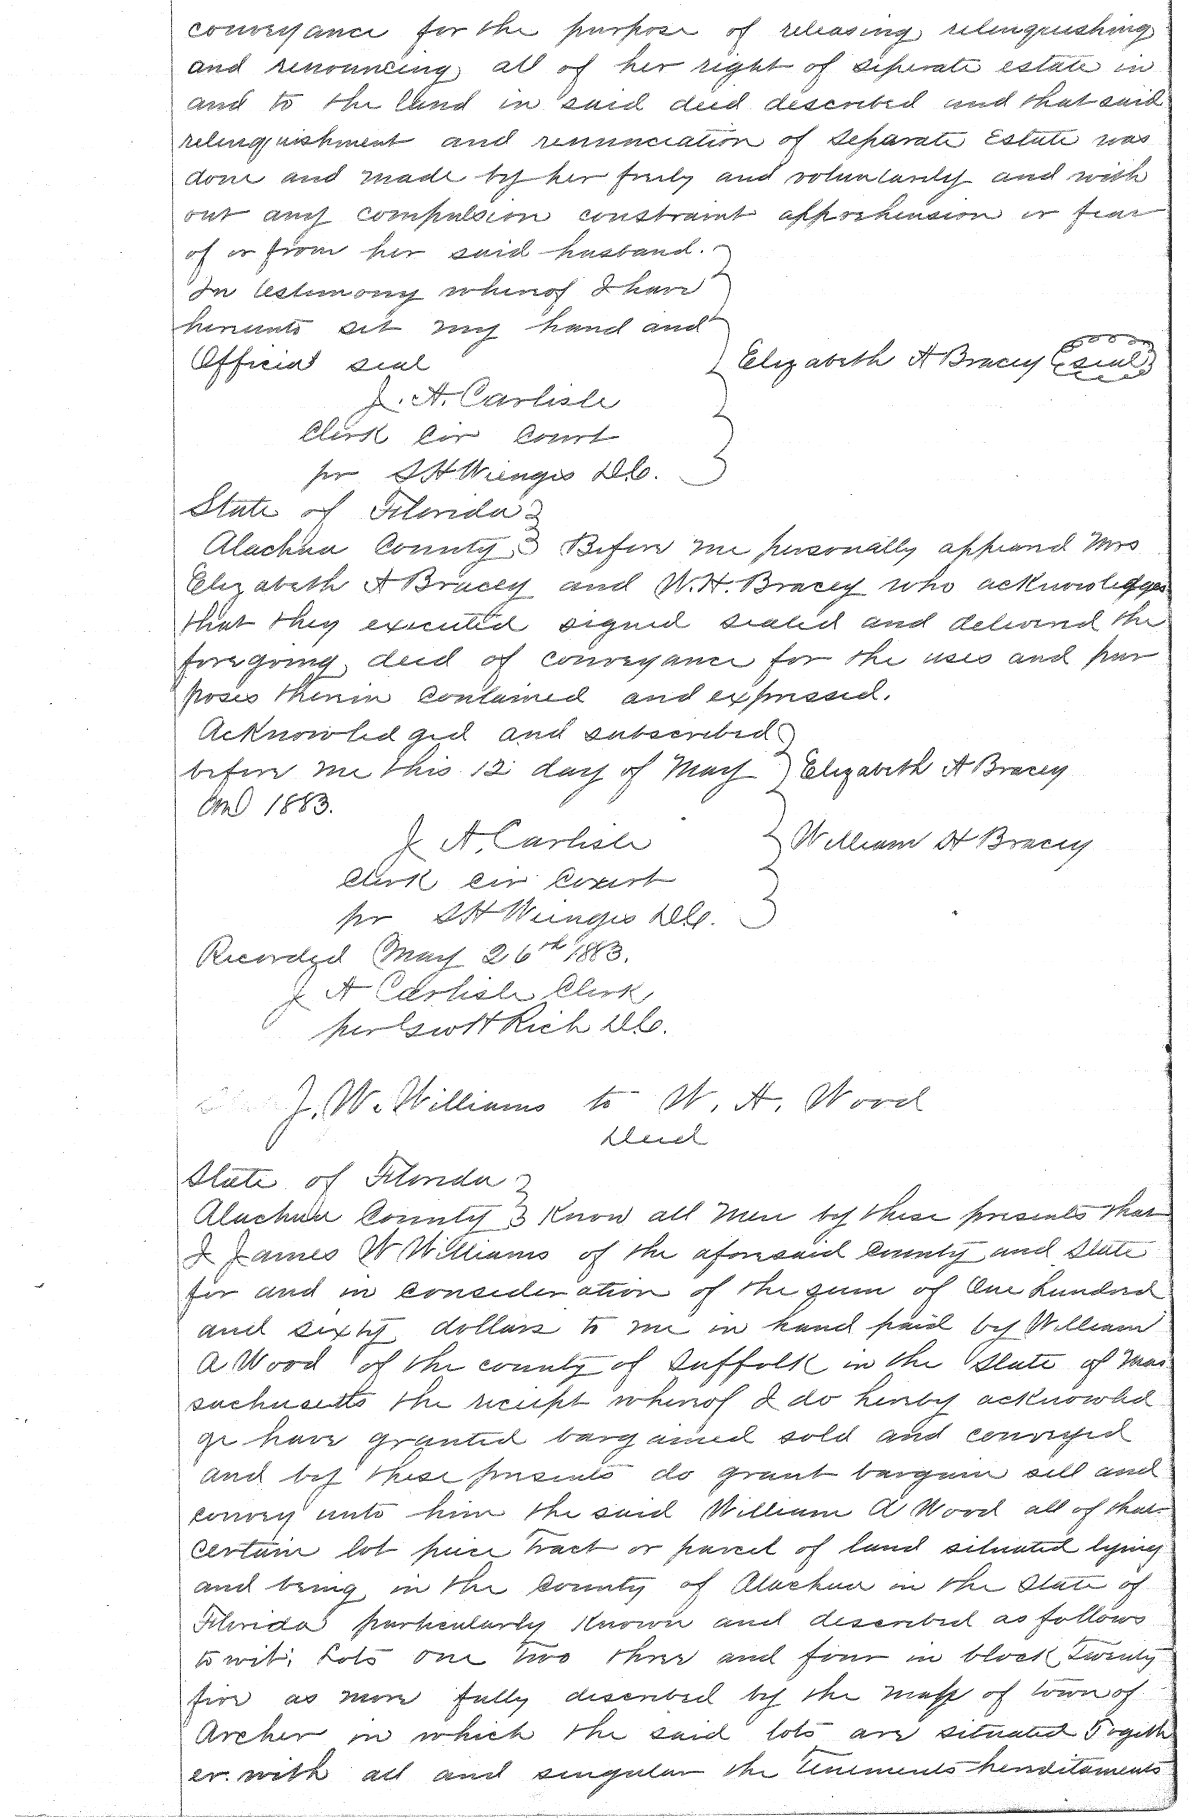 conveyance for the purpose of releasing, relinquishing
and renouncing, all of her right of seperate estate in
and to the land in said deed described and that said
relinquishment and renunciation of Separate Estate was
done and made by her freely and voluntarily and with
out any compulsion constraint apprehension or fear
of or from her said husband.
In testimony whereof I have
hereunto set my hand and
Official seal
Elizabeth A Bracey seal
J. A. Carlisle
Clerk Cir Court
pr S H Wienges D.C.
State of Florida
Alachua County Before me personally appeared Mrs
Elizabeth A Bracey and W. H. Bracey who acknowledges
that they executed signed sealed and delivered the
foregoing deed of conveyance for the uses and pur
poses therein contained and expressed.
Acknowledged and subscribed
before me this 12 day of May Elizabeth A Bracey
AD 1883.
J A. Carlisle William H Bracey
Clerk Cir Court
pr S H Wienges D.C.
Recorded May 26th 1883.
J A Carlisle Clerk
per Geo H Rich D.C.
J. W. Williams to W. A. Wood
Deed
State of Florida
Alachua County Know all Men by these presents that
I James W Williams of the aforesaid County and State
for and in consideration of the sum of One hundred
and sixty dollars to me in hand paid by William
A Wood of the county of Suffolk in the State of Mas
sachusetts the receipt whereof I do hereby acknowled
ge have granted bargained sold and conveyed
and by these presents do grant bargain sell and
convey unto him the said William A Wood all of that
certain lot piece Tract or parcel of land situated lying
and being in the County of Alachua in the State of
Florida particularly Known and described as follows
to wit: Lots one two three and four in block Twenty
five as more fully described by the map of town of
Archer in which the said lots are situated Togeth
er. with all and singular the Tenements hereditaments